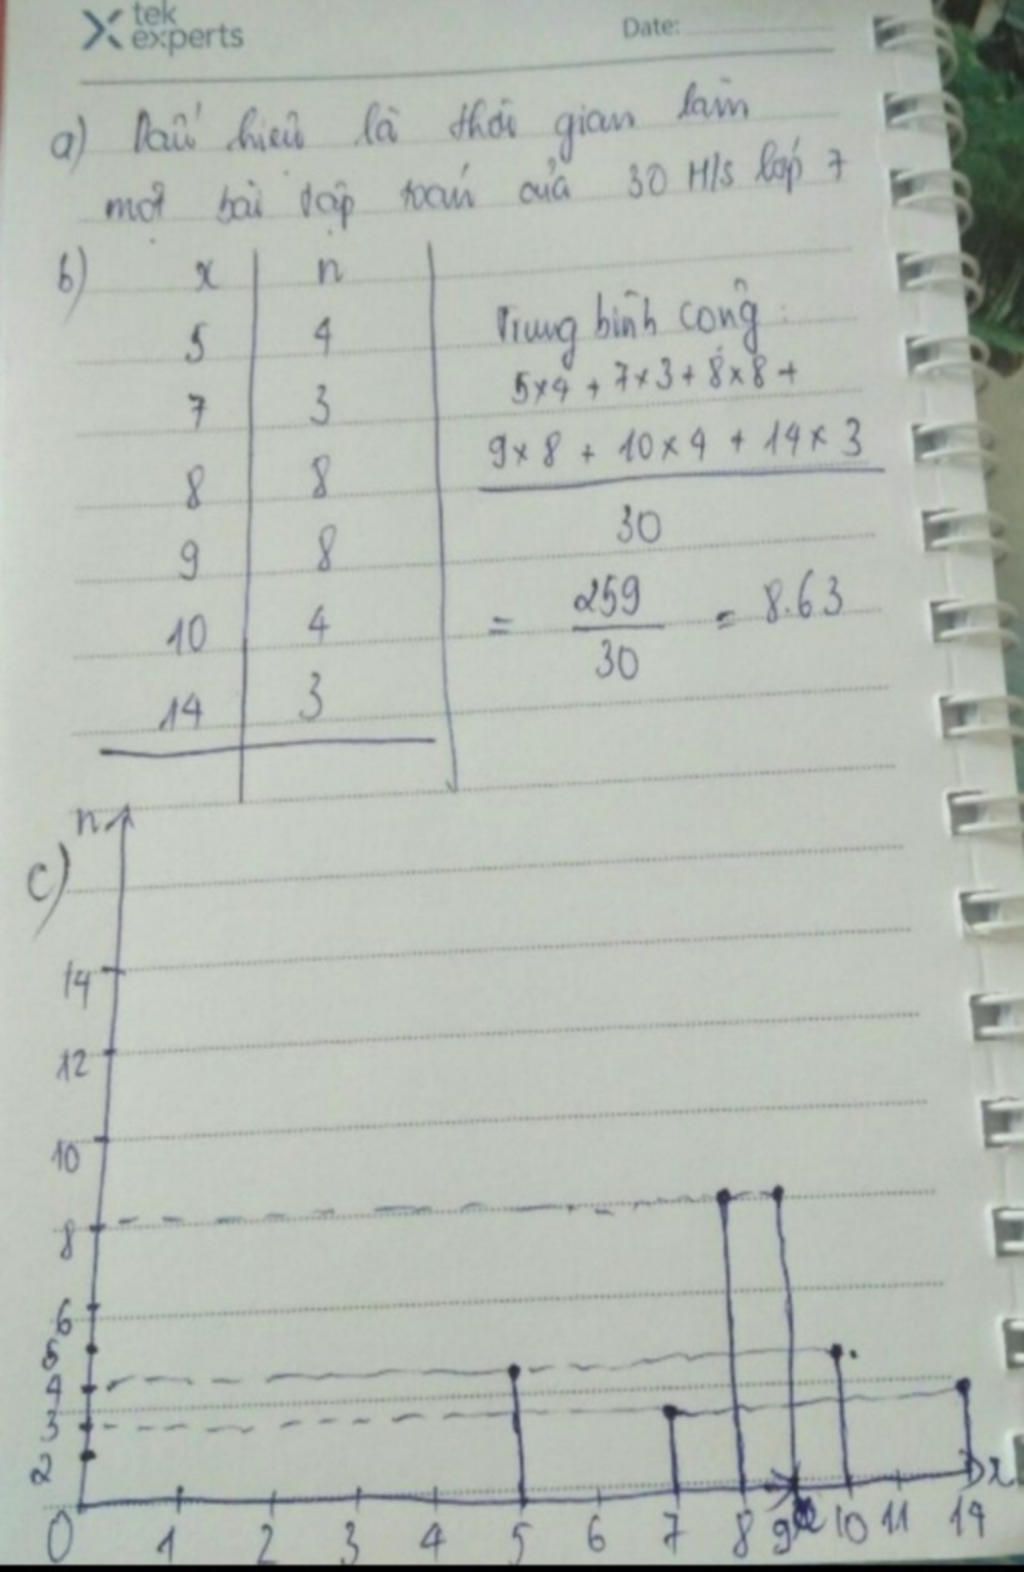 tek
experts
Date:
a) Dấu hiệu là thời gian làm
một bài tập toán của 30 H/S lớp 7
b) x n
5 4
7 3
8 8
9 8
10 4
14 3
Trung bình cộng :
5×4 + 7×3 + 8×8 +
9×8 + 10×4 + 14×3
30
= 259/30 = 8.63
c)
n
14
12
10
8
6
5
4
3
2
0 1 2 3 4 5 6 7 8 9 10 11 14 x